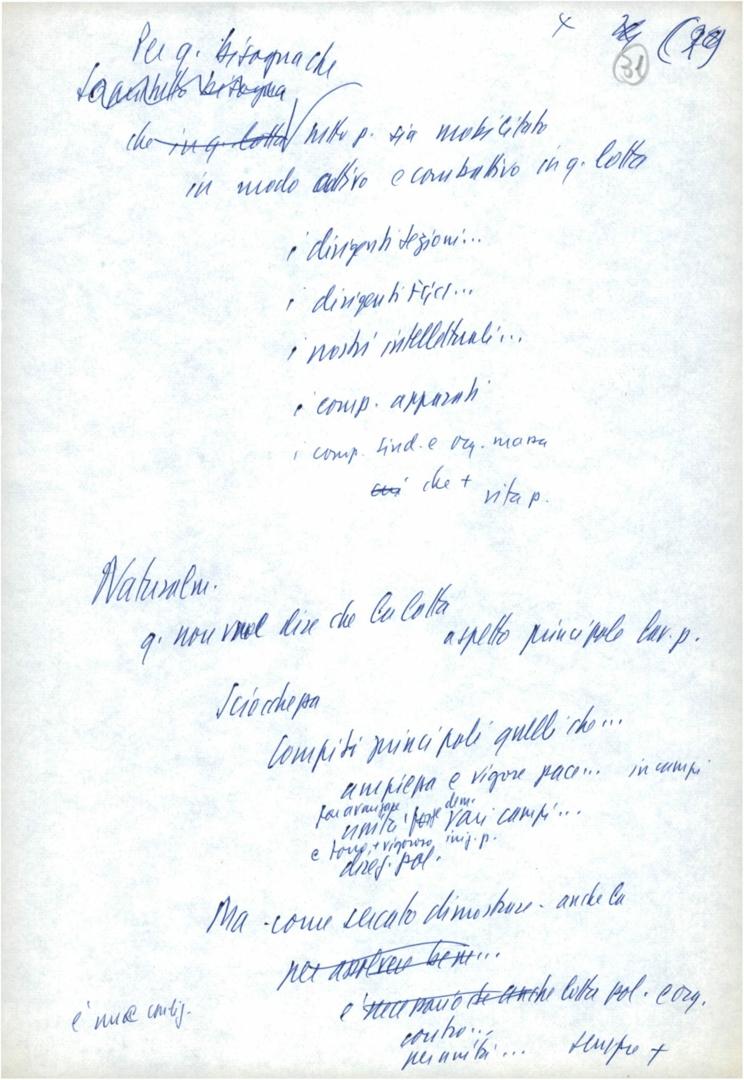 x (29)
31
Per q. bisogna che
bisogna
che in q. lotta tutto p. sia mobilitato
in modo attivo e combattivo in q. lotta
i dirigenti sezioni...
i dirigenti
i nostri intellettuali...
i comp. apparati
i comp. sind. e org. massa
che +
vita p.
Naturalm.
q. non vuol dire che la lotta
aspetto principale lav. p.
Sciocchezza
Compiti principali quelli che...
ampiezza e vigore pace... in campi
far avanzare
unità forze dem. vari campi...
e + vigoroso
pol.
Ma - come cercato dimostrare - anche la
per assolvere bene...
è necessario anche lotta pol. e org.
contro...
per unità... sempre +